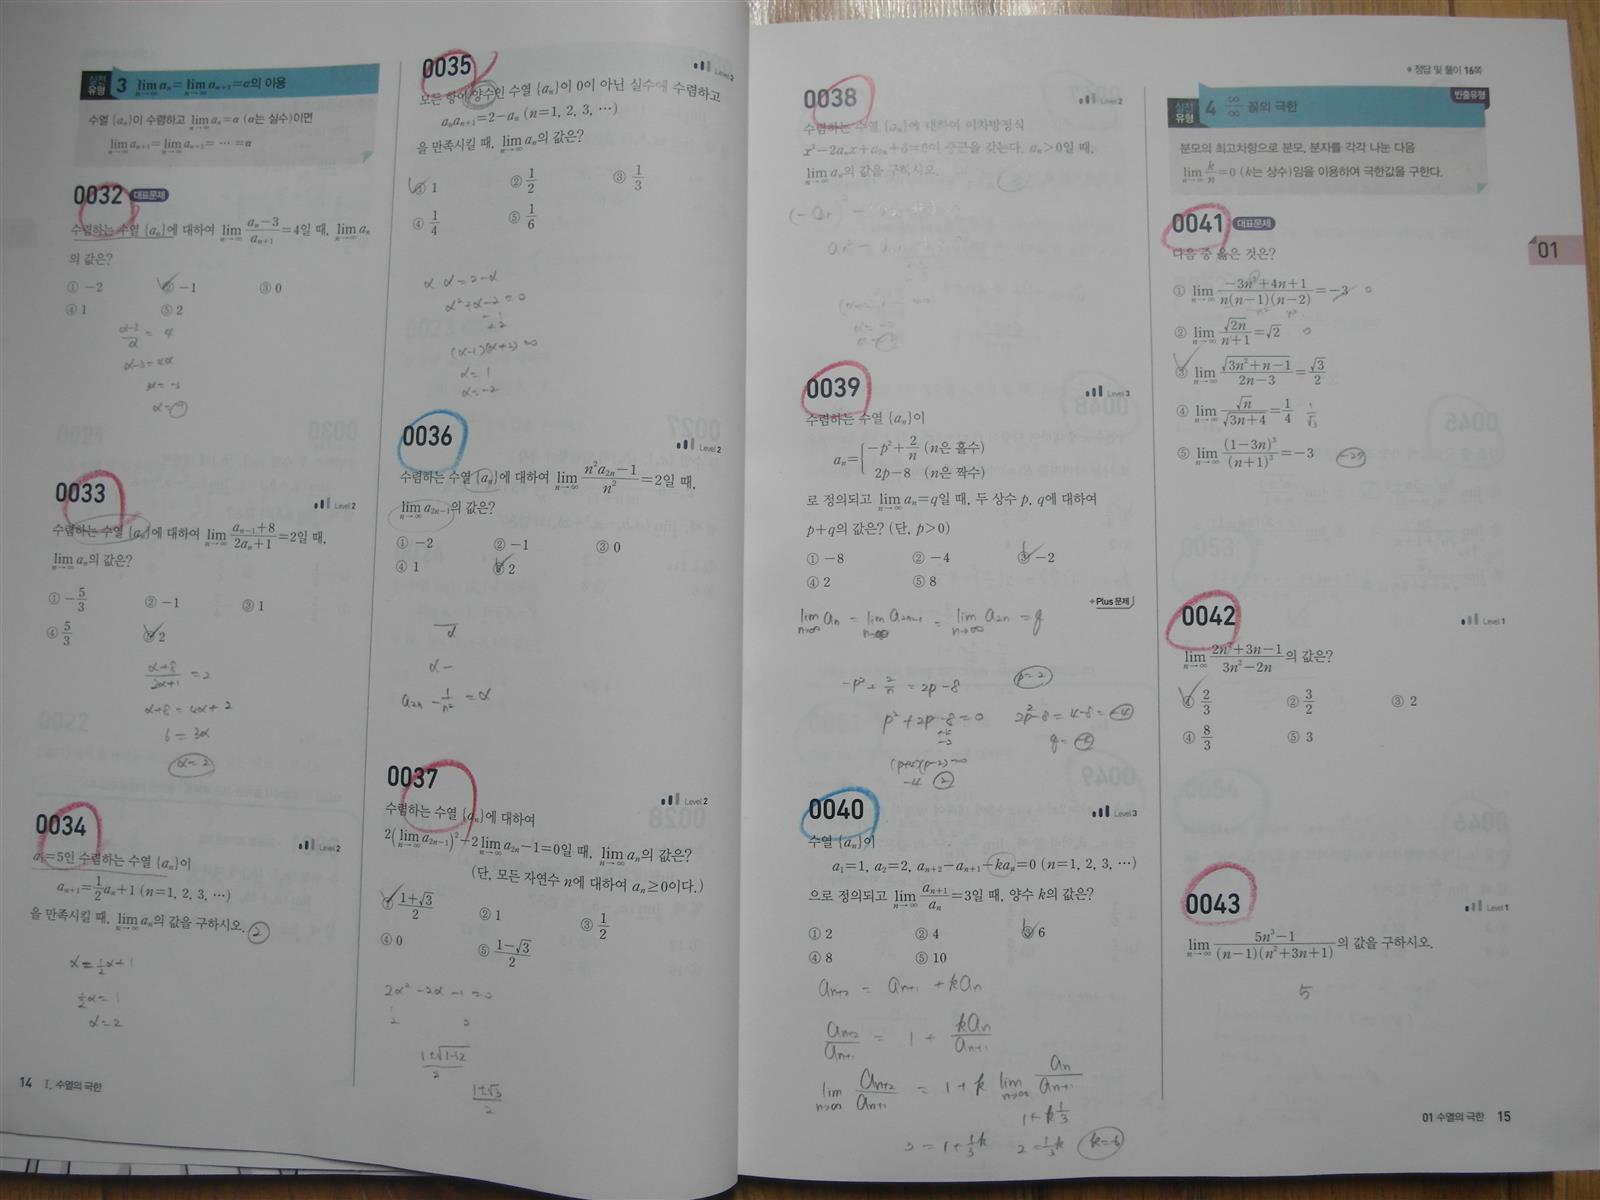 실전 유형 3 lim aₙ = lim aₙ₊₁ = α의 이용
n→∞ n→∞
수열 {aₙ}이 수렴하고 lim aₙ=α (α는 실수)이면
lim aₙ₊₁ = lim aₙ₊₂ = ⋯ = α
0032 대표문제
수렴하는 수열 {aₙ}에 대하여 lim (aₙ−3)/aₙ₊₁ =4일 때, lim aₙ
의 값은?
① −2 ② −1 ③ 0
④ 1 ⑤ 2
(α−3)/α = 4
α−3=4α
α=−1
0033 Level 2
수렴하는 수열 {aₙ}에 대하여 lim (aₙ₋₁+8)/(2aₙ+1) =2일 때,
lim aₙ의 값은?
① −5/3 ② −1 ③ 1
④ 5/3 ⑤ 2
(α+8)/(2α+1) = 2
α+8 = 4α+2
6 = 3α
α=2
0034 Level 2
a₁=5인 수렴하는 수열 {aₙ}이
aₙ₊₁=1/2 aₙ+1 (n=1, 2, 3, ⋯)
을 만족시킬 때, lim aₙ의 값을 구하시오. 2
α=1/2 α+1
1/2 α = 1
α=2
14 Ⅰ. 수열의 극한
0035 Level 2
모든 항이 양수인 수열 {aₙ}이 0이 아닌 실수에 수렴하고
aₙaₙ₊₁=2−aₙ (n=1, 2, 3, ⋯)
을 만족시킬 때, lim aₙ의 값은?
① 1 ② 1/2 ③ 1/3
④ 1/4 ⑤ 1/6
α·α=2−α
α²+α−2=0
(α−1)(α+2)=0
α=1
α=−2
0036 Level 2
수렴하는 수열 {aₙ}에 대하여 lim (n²a₂ₙ−1)/n² =2일 때,
lim a₂ₙ₋₁의 값은?
① −2 ② −1 ③ 0
④ 1 ⑤ 2
α−
a₂ₙ − 1/n² = α
0037 Level 2
수렴하는 수열 {aₙ}에 대하여
2(lim a₂ₙ₋₁)²−2 lim a₂ₙ−1=0일 때, lim aₙ의 값은?
(단, 모든 자연수 n에 대하여 aₙ≥0이다.)
① (1+√3)/2 ② 1 ③ 1/2
④ 0 ⑤ (1−√3)/2
2α²−2α−1=0
(1±√3)/2
• 정답 및 풀이 16쪽
0038 Level 2
수렴하는 수열 {aₙ}에 대하여 이차방정식
lim aₙ의 값을 구하시오.
0039 Level 3
수렴하는 수열 {aₙ}이
aₙ= { −p²+2/n (n은 홀수)
2p−8 (n은 짝수)
로 정의되고 lim aₙ=q일 때, 두 상수 p, q에 대하여
p+q의 값은? (단, p>0)
① −8 ② −4 ③ −2
④ 2 ⑤ 8
+Plus 문제
lim aₙ = lim a₂ₙ₋₁ = lim a₂ₙ = q
−p²+2/n = 2p−8 p=2
p²+2p−8=0 2p−8=4−8=−4
q=−4
(p+4)(p−2)=0
−4 2
0040 Level 3
수열 {aₙ}이
a₁=1, a₂=2, aₙ₊₂−aₙ₊₁−kaₙ=0 (n=1, 2, 3, ⋯)
으로 정의되고 lim aₙ₊₁/aₙ =3일 때, 양수 k의 값은?
① 2 ② 4 ③ 6
④ 8 ⑤ 10
aₙ₊₂ = aₙ₊₁ + kaₙ
aₙ₊₂/aₙ₊₁ = 1 + kaₙ/aₙ₊₁
lim aₙ₊₂/aₙ₊₁ = 1+k lim aₙ/aₙ₊₁
1+k 1/3
3 = 1+1/3 k 2=1/3 k k=6
실전 유형 4 ∞/∞ 꼴의 극한 빈출유형
분모의 최고차항으로 분모, 분자를 각각 나눈 다음
lim k/n =0 (k는 상수)임을 이용하여 극한값을 구한다.
0041 대표문제
다음 중 옳은 것은?
① lim (−3n²+4n+1)/(n(n−1)(n−2)) =−3 0
② lim √(2n)/(n+1) =√2 0
③ lim √(3n²+n−1)/(2n−3) = √3/2
④ lim √n/√(3n+4) = 1/4 1/√3
⑤ lim (1−3n)³/(n+1)³ =−3 −27
01
0042 Level 1
lim (2n²+3n−1)/(3n²−2n) 의 값은?
① 2/3 ② 3/2 ③ 2
④ 8/3 ⑤ 3
0043 Level 1
lim (5n³−1)/((n−1)(n²+3n+1)) 의 값을 구하시오.
5
01 수열의 극한 15